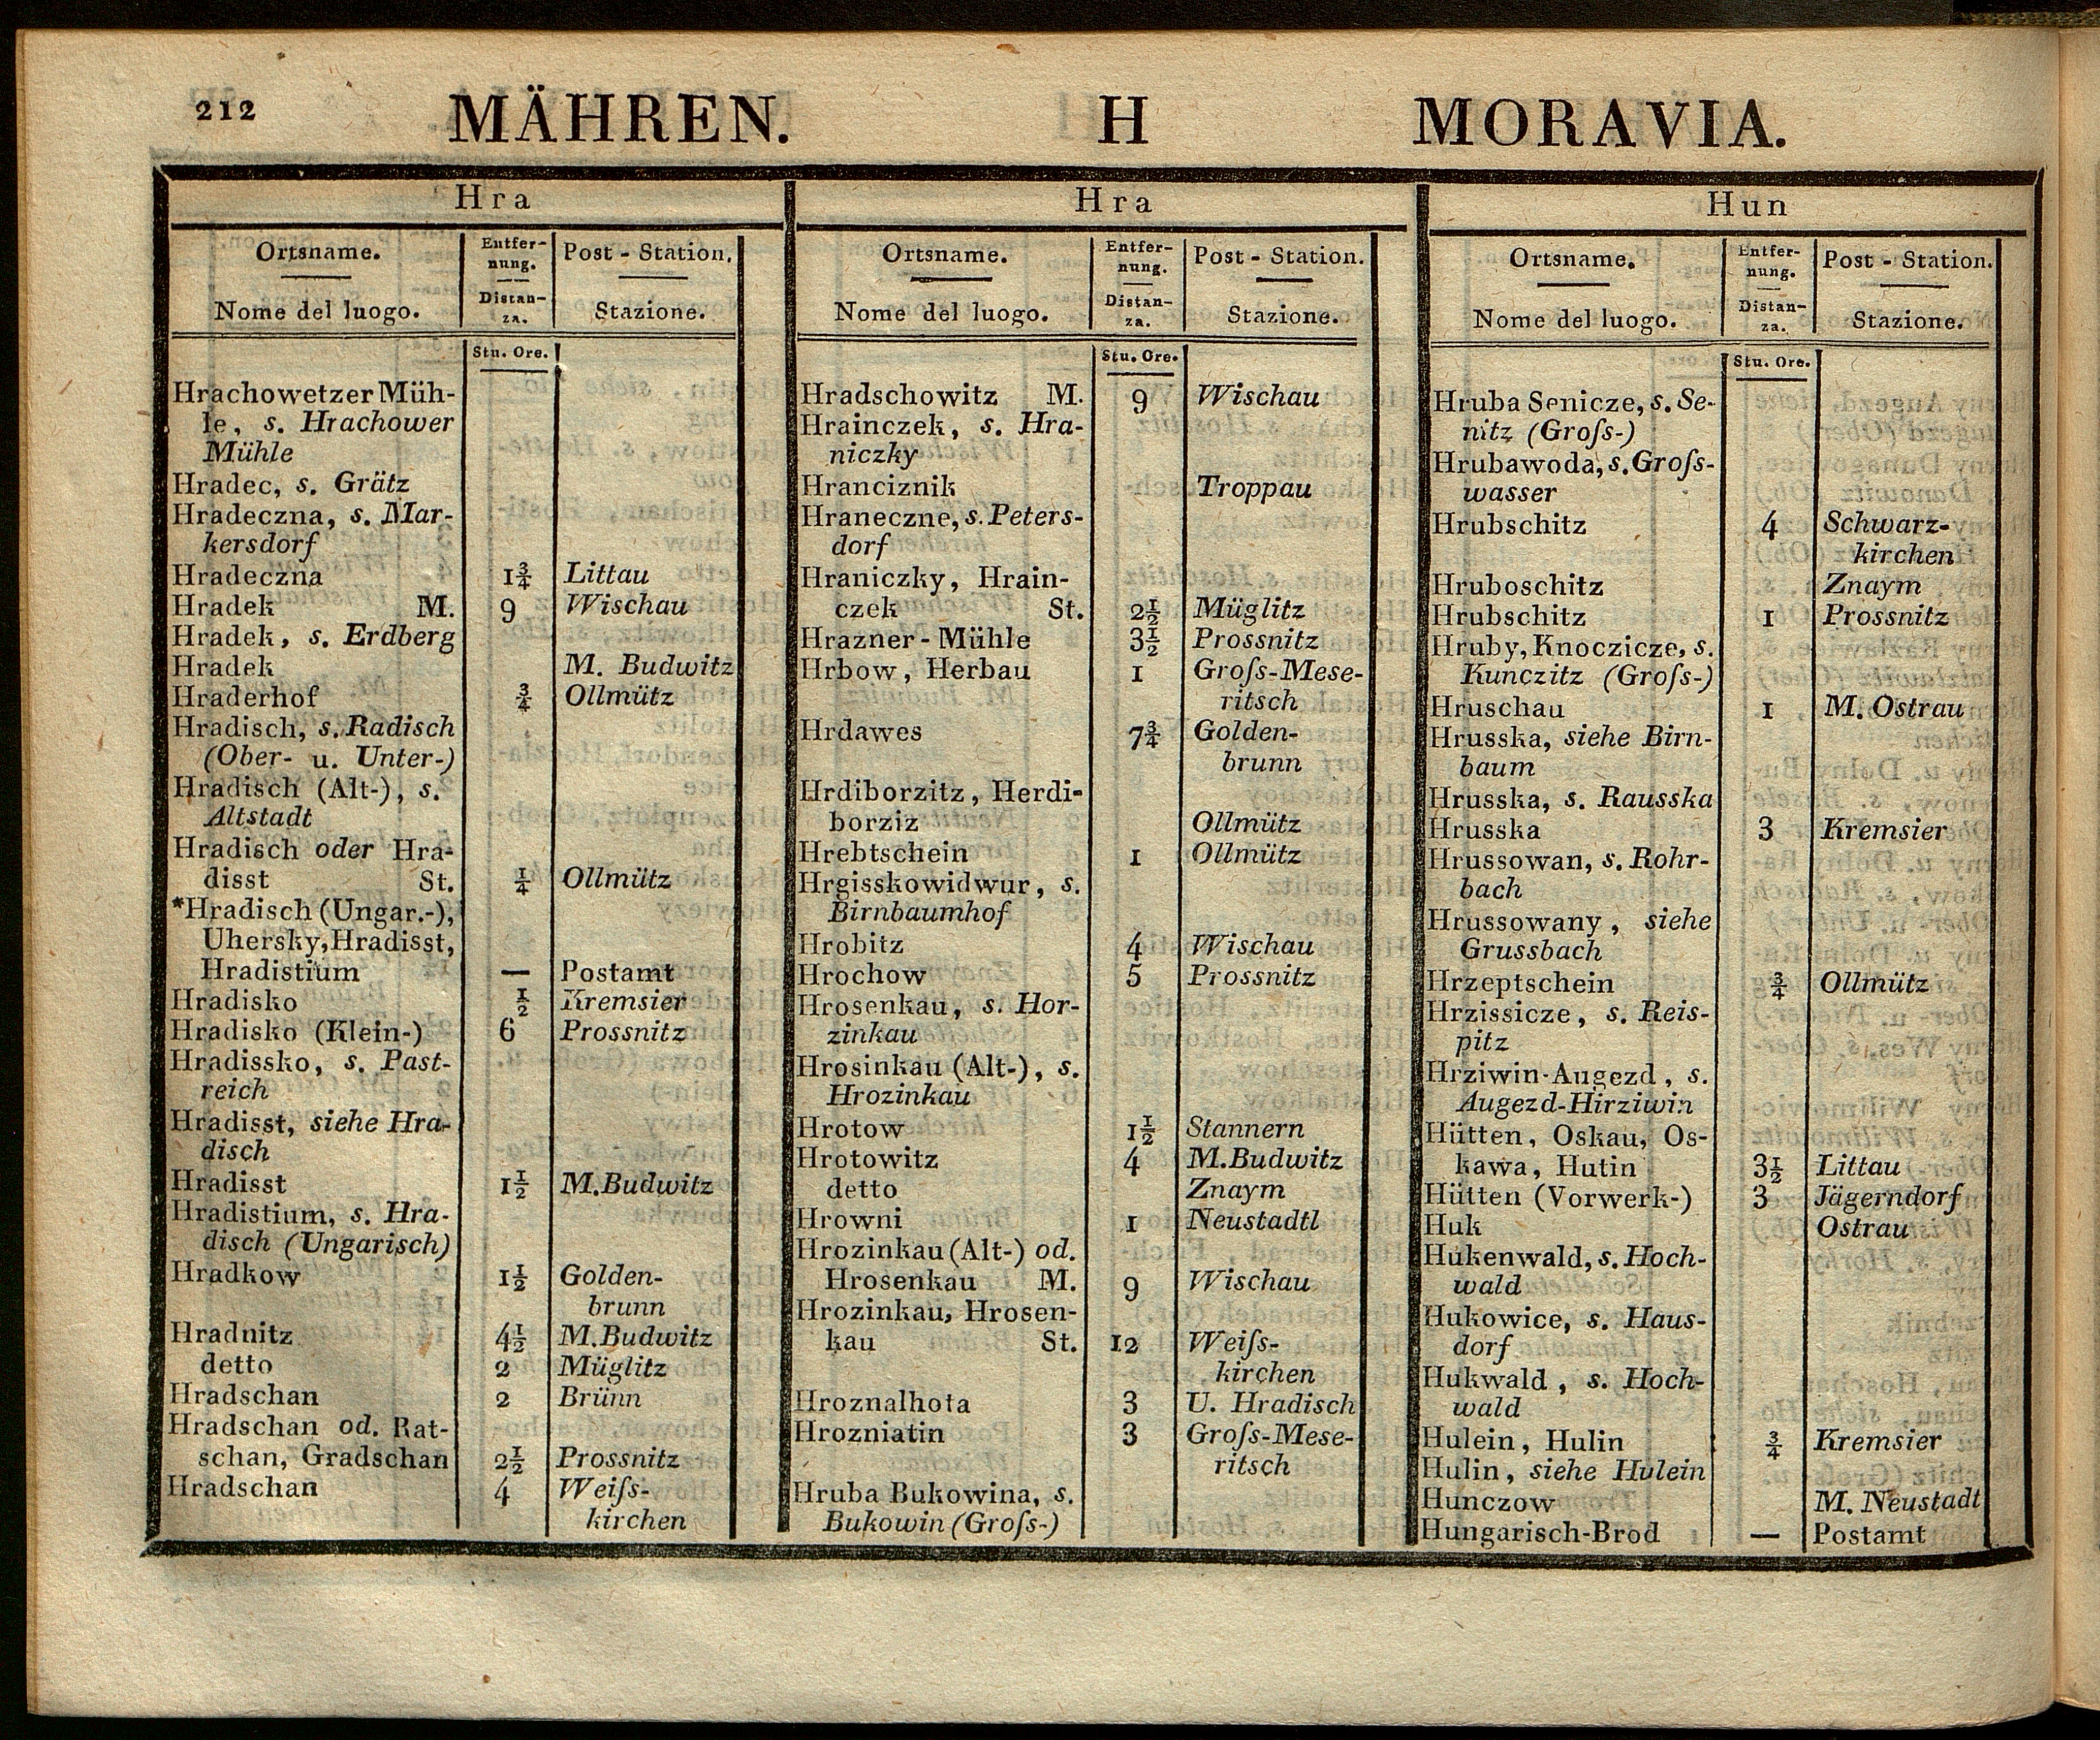 212 MÄHREN. H MORAVIA.
Hra
Ortsname. Entfer- Post - Station.
nung.
Nome del luogo. Distan- Stazione.
za.
Stu. Ore.
Hrachowetzer Müh-
le, s. Hrachower
Mühle
Hradec, s. Grätz
Hradeczna, s. Mar-
kersdorf
Hradeczna 1¾ Littau
Hradek M. 9 Wischau
Hradek, s. Erdberg
Hradek M. Budwitz
Hraderhof ¾ Ollmütz
Hradisch, s. Radisch
(Ober- u. Unter-)
Hradisch (Alt-), s.
Altstadt
Hradisch oder Hra-
disst St. ¼ Ollmütz
*Hradisch (Ungar.-),
Uhersky, Hradisst,
Hradistium — Postamt
Hradisko ½ Kremsier
Hradisko (Klein-) 6 Prossnitz
Hradissko, s. Past-
reich
Hradisst, siehe Hra-
disch
Hradisst 1½ M. Budwitz
Hradistium, s. Hra-
disch (Ungarisch)
Hradkow 1½ Golden-
brunn
Hradnitz 4½ M. Budwitz
detto 2 Müglitz
Hradschan 2 Brünn
Hradschan od. Rat-
schan, Gradschan 2½ Prossnitz
Hradschan 4 Weiſs-
kirchen
Hra
Ortsname. Entfer- Post - Station.
nung.
Nome del luogo. Distan- Stazione.
za.
Stu. Ore.
Hradschowitz M. 9 Wischau
Hrainczek, s. Hra-
niczky
Hranciznik Troppau
Hraneczne, s. Peters-
dorf
Hraniczky, Hrain-
czek St. 2½ Müglitz
Hrazner-Mühle 3½ Prossnitz
Hrbow, Herbau 1 Groſs-Mese-
ritsch
Hrdawes 7¾ Golden-
brunn
Hrdiborzitz, Herdi-
borziz Ollmütz
Hrebtschein 1 Ollmütz
Hrgisskowidwur, s.
Birnbaumhof
Hrobitz 4 Wischau
Hrochow 5 Prossnitz
Hrosenkau, s. Hor-
zinkau
Hrosinkau (Alt-), s.
Hrozinkau
Hrotow 1½ Stannern
Hrotowitz 4 M. Budwitz
detto Znaym
Hrowni 1 Neustadtl
Hrozinkau (Alt-) od.
Hrosenkau M. 9 Wischau
Hrozinkau, Hrosen-
kau St. 12 Weiſs-
kirchen
Hroznalhota 3 U. Hradisch
Hrozniatin 3 Groſs-Mese-
ritsch
Hruba Bukowina, s.
Bukowin (Groſs-)
Hun
Ortsname. Entfer- Post - Station.
nung.
Nome del luogo. Distan- Stazione.
za.
Stu. Ore.
Hruba Senicze, s. Se-
nitz (Groſs-)
Hrubawoda, s. Groſs-
wasser
Hrubschitz 4 Schwarz-
kirchen
Hruboschitz Znaym
Hrubschitz 1 Prossnitz
Hruby, Knoczicze, s.
Kunczitz (Groſs-)
Hruschau 1 M. Ostrau
Hrusska, siehe Birn-
baum
Hrusska, s. Rausska
Hrusska 3 Kremsier
Hrussowan, s. Rohr-
bach
Hrussowany, siehe
Grussbach
Hrzeptschein ¾ Ollmütz
Hrzissicze, s. Reis-
pitz
Hrziwin-Augezd, s.
Augezd-Hirziwin
Hütten, Oskau, Os-
kawa, Hutin 3½ Littau
Hütten (Vorwerk-) 3 Jägerndorf
Huk Ostrau
Hukenwald, s. Hoch-
wald
Hukowice, s. Haus-
dorf
Hukwald, s. Hoch-
wald
Hulein, Hulin ¾ Kremsier
Hulin, siehe Hulein
Hunczow M. Neustadt
Hungarisch-Brod — Postamt